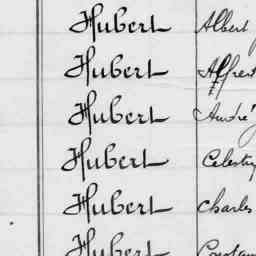 Hubert Albert
Hubert Alfred
Hubert André
Hubert
Hubert Charles
Hubert